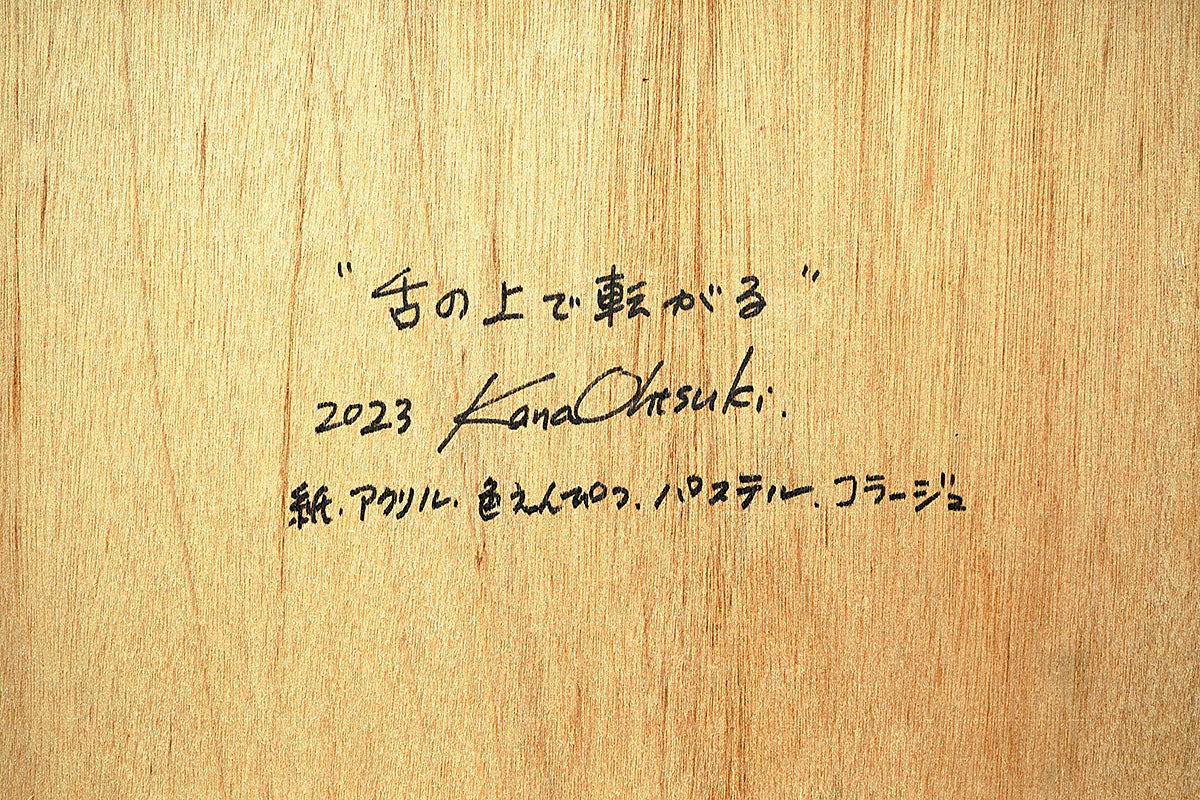 "舌の上で転がる"
2023 Kana Ohtsuki.
紙.アクリル.色えんぴつ.パステル.コラージュ